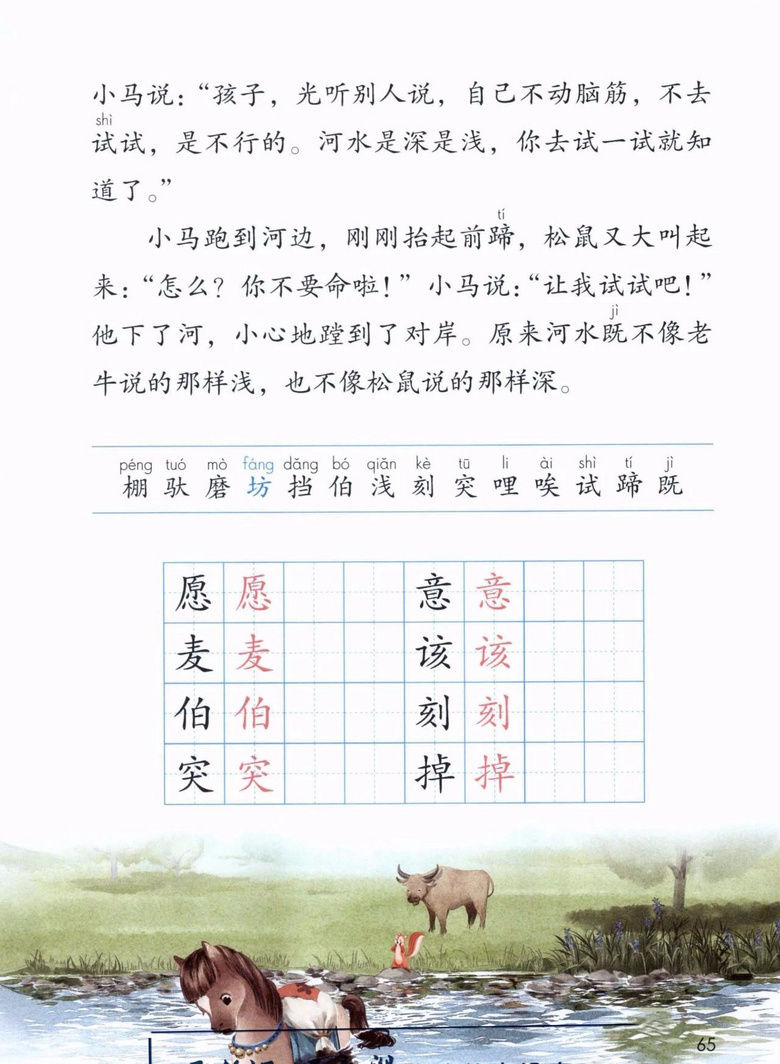 小马说：“孩子，光听别人说，自己不动脑筋，不去
shì
试试，是不行的。河水是深是浅，你去试一试就知
道了。”
tí
小马跑到河边，刚刚抬起前蹄，松鼠又大叫起
来：“怎么？你不要命啦！”小马说：“让我试试吧！”
jì
他下了河，小心地蹚到了对岸。原来河水既不像老
牛说的那样浅，也不像松鼠说的那样深。
péng tuó mò fáng dǎng bó qiǎn kè tū li ài shì tí jì
棚 驮 磨 坊 挡 伯 浅 刻 突 哩 唉 试 蹄 既
愿 愿 意 意
麦 麦 该 该
伯 伯 刻 刻
突 突 掉 掉
65